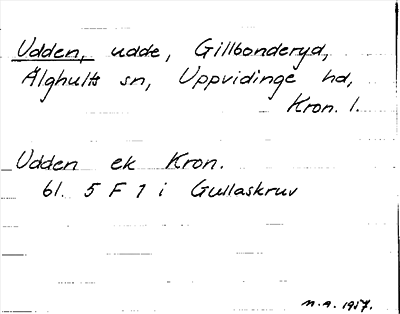 Udden, udde, Gillbonderyd,
Älghults sn, Uppvidinge hd,
Kron. l.
Udden ek Kron.
bl. 5 F 7 i Gullaskruv
M.A. 1957.